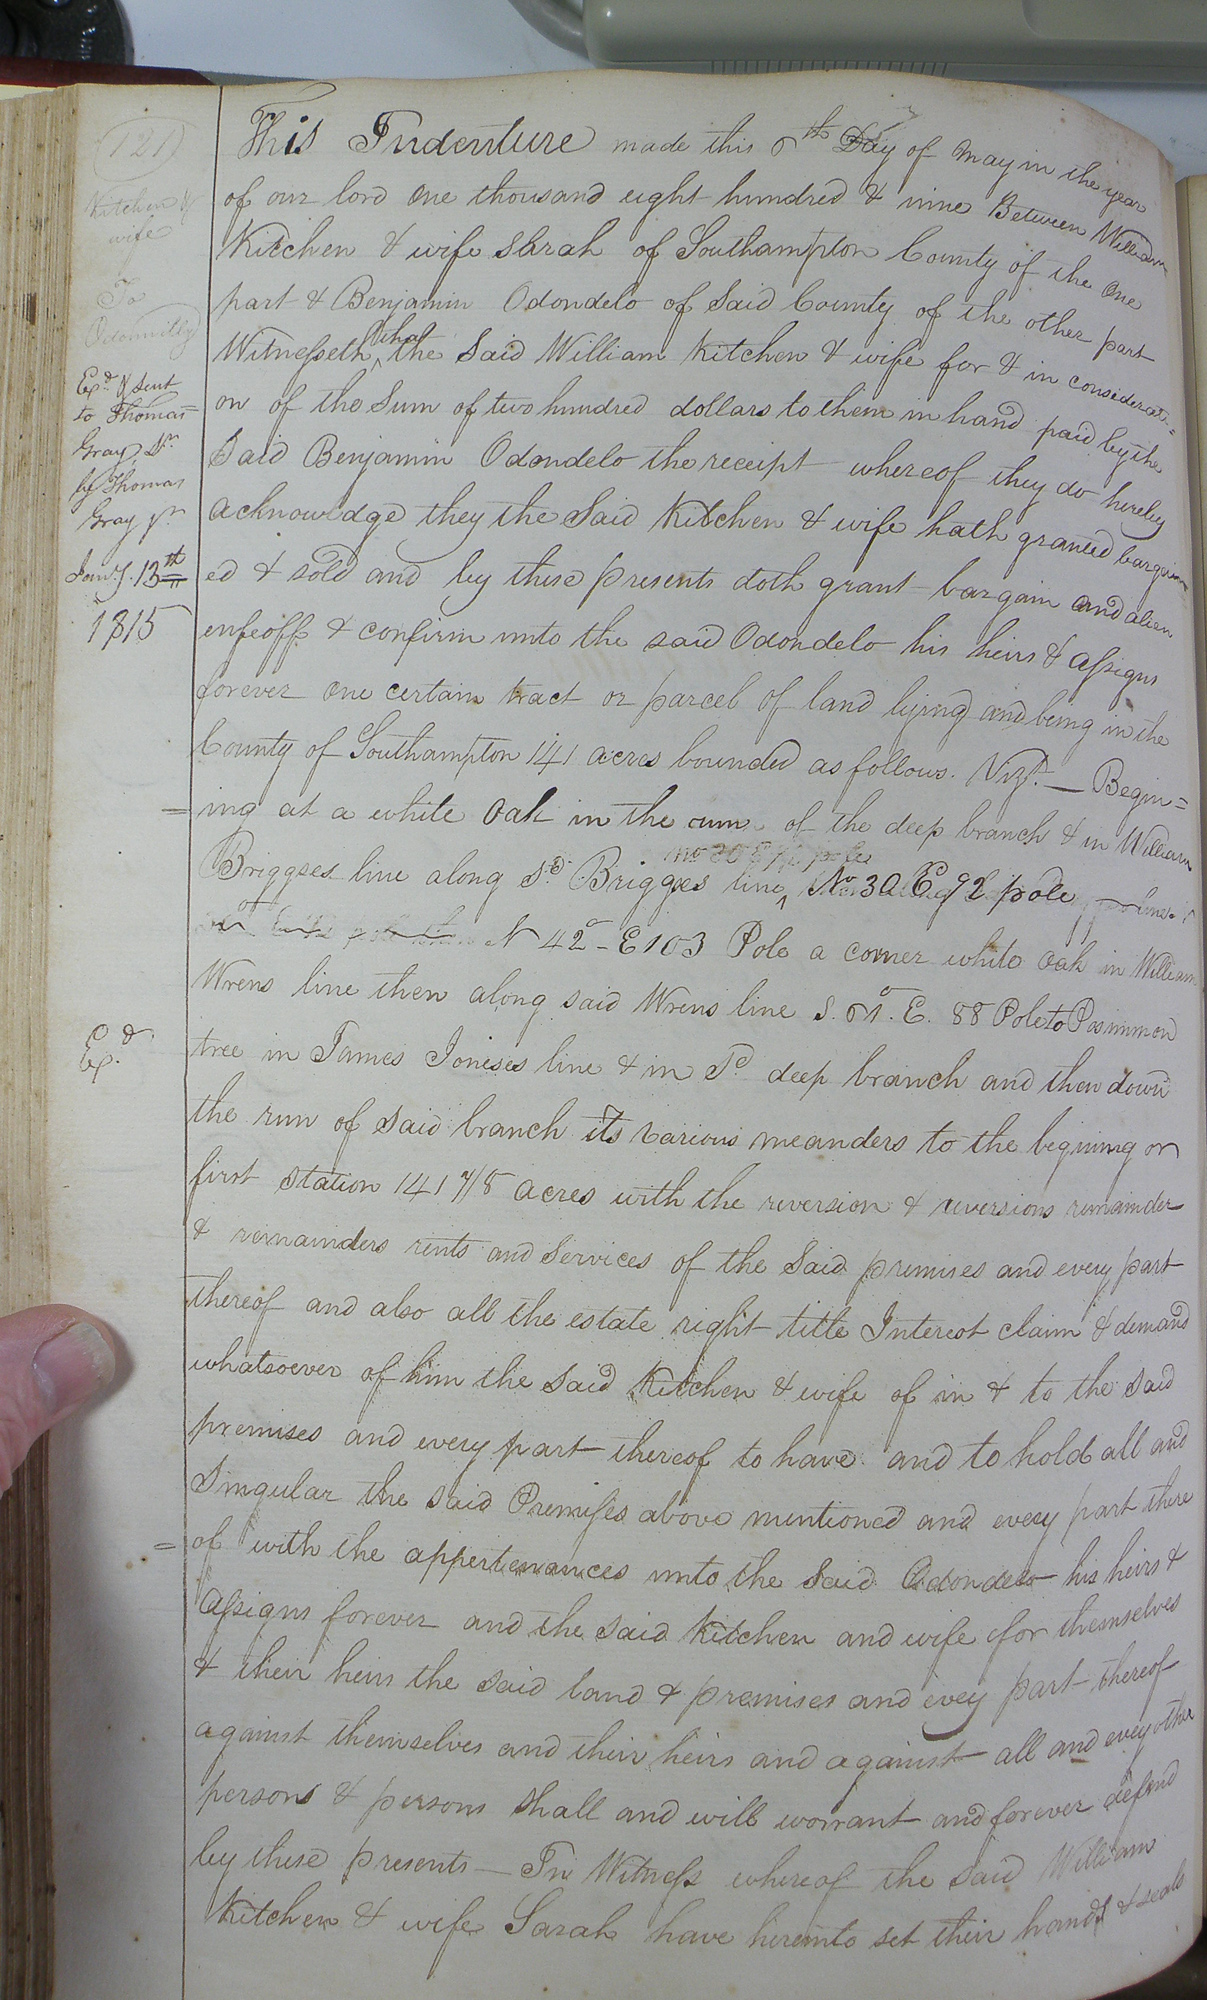 121
Kitchen &
wife
To
Odonnilly
Exd. & sent
to Thomas=
Gray, Sr.
by Thomas
Gray jr
Jany. 13th
1815
Exd.
This Indenture made this 5th Day of May in the year
of our lord One thousand eight hundred & nine Between William
Kitchen & wife Sarah of Southampton County of the One
part & Benjamin Odondelo of Said County of the other part
Witnesseth, that the Said William Kitchen & wife for & in considerati=
on of the Sum of two hundred dollars to them in hand paid by the
Said Benjamin Odondelo the receipt whereof they do hereby
acknowidge they the Said Kitchen & wife hath granted bargain
ed & sold and by these presents doth grant bargain and alien
enfeoff & confirm unto the said Odondelo his heirs & assigns
forever one certain tract or parcel of land lying and being in the
County of Southampton 141 acres bounded as follows. Vizt. — Begin=
=ing at a white Oak in the run of the deep branch & in William
Briggses line along Sd. Briggses line, No 30 E 92 pole
N 42° - E 103 Pole a corner white Oak in William
Wrens line then along said Wrens line S. 51°. E. 88 Pole to Posimmon
tree in James Joneses line & in Sd deep branch and then down
the run of Said branch its various meanders to the begining or
first station 141 7/8 acres with the reversion & reversions remainder
& remainders rents and Services of the Said premises and every part
thereof and also all the estate right title Interest claim & demand
whatsoever of him the Said Kitchen & wife of in & to the said
premises and every part thereof to have and to hold all and
Singular the said Premises above mentioned and every part there
=of with the appertenances unto the Said Odondelo his heirs &
Assigns forever and the said Kitchen and wife for themselves
& their heirs the said land & premises and evey part thereof
against themselves and their heirs and against all and evey other
persons & persons shall and will warrant and forever defend
by these presents — In Witness whereof the said William
Kitchen & wife Sarah have hereunto set their hands & seals